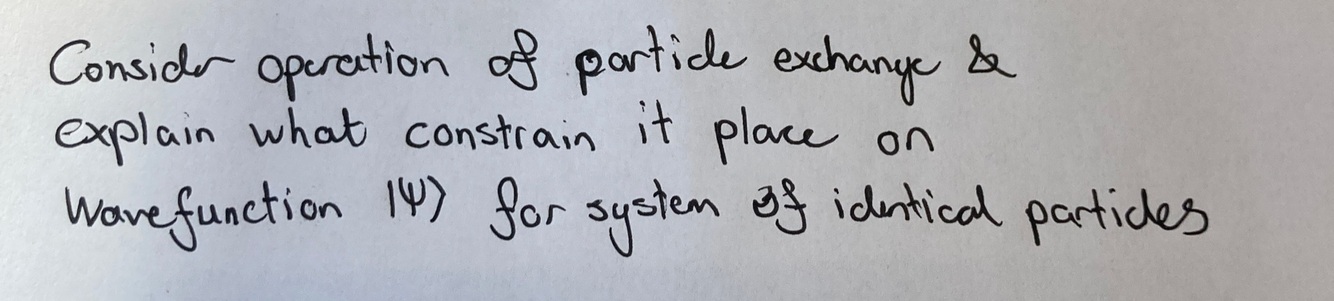 Consider operation of particle exchange &
explain what constrain it place on
Wavefunction |Ψ⟩ for system of identical particles